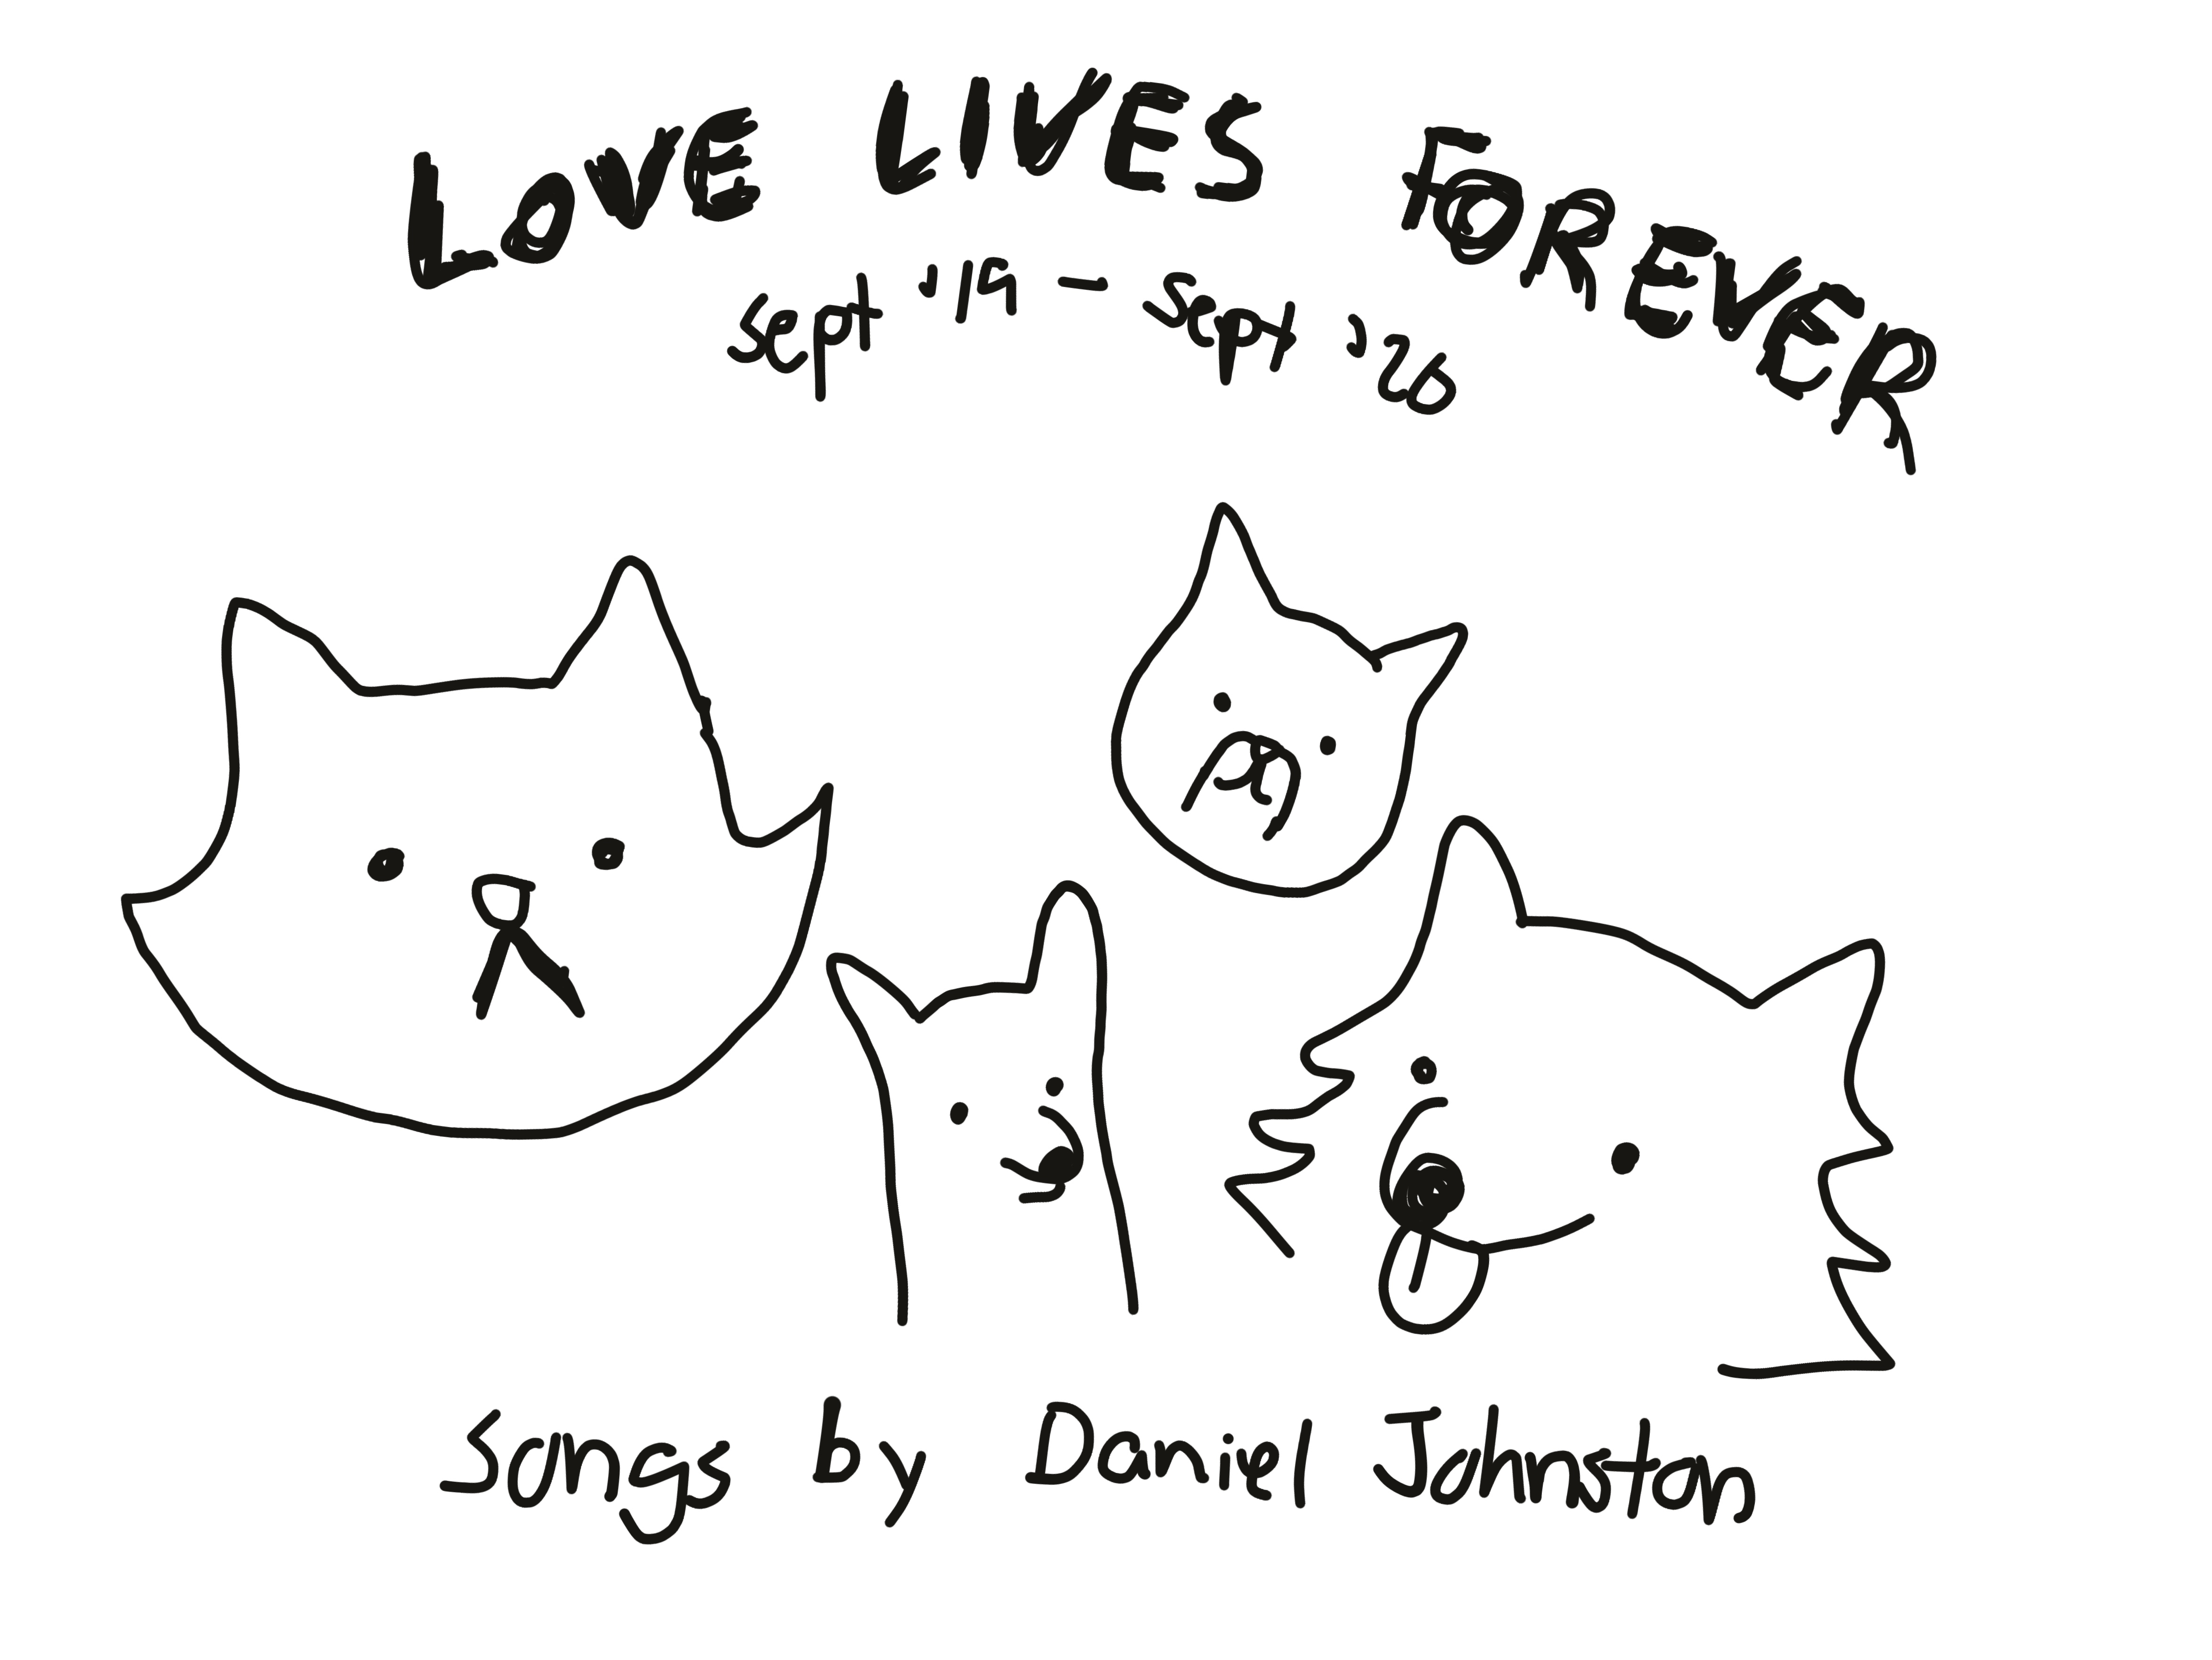 LOVE LIVES FOREVER
Sept '19 — Sept '26
Songs by Daniel Johnston